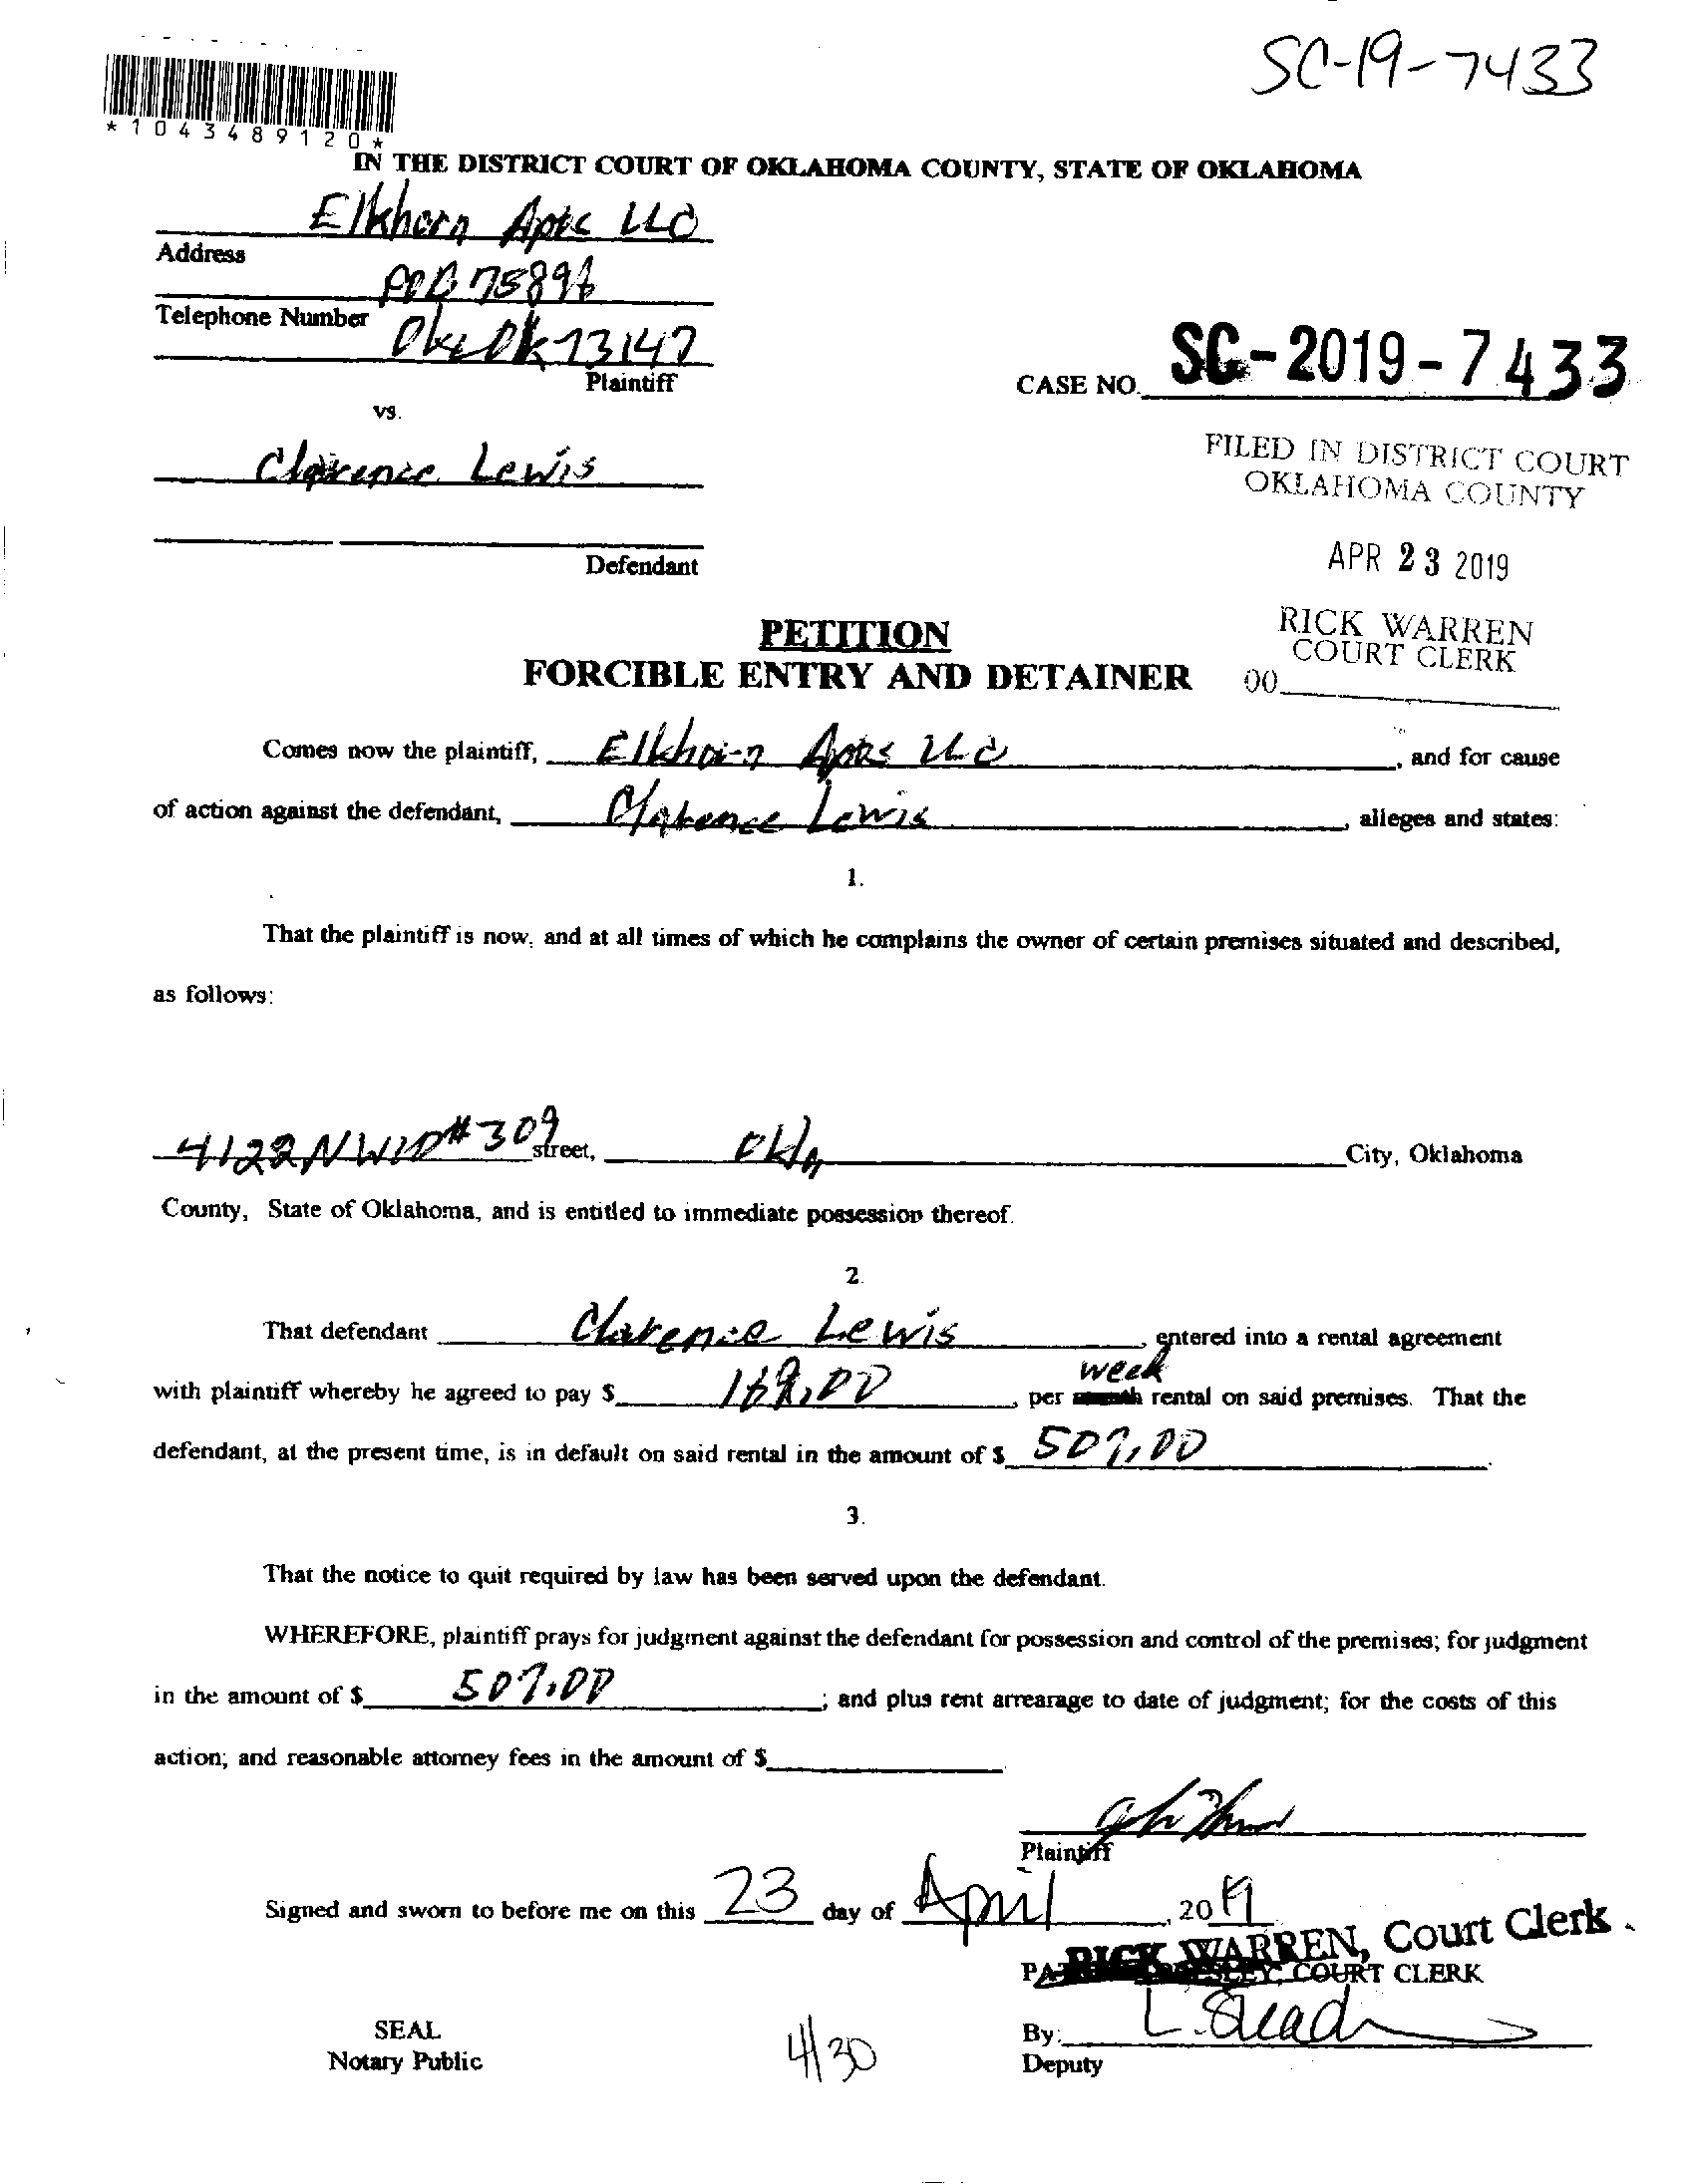 SC-19-7433
*1043489120*
IN THE DISTRICT COURT OF OKLAHOMA COUNTY, STATE OF OKLAHOMA
Elkhorn Apts LLC
Address
POB 75896
Telephone Number
Okc Ok 73147
Plaintiff
CASE NO. SC-2019-7433
vs.
Clarence Lewis
FILED IN DISTRICT COURT
OKLAHOMA COUNTY
Defendant
APR 23 2019
PETITION
RICK WARREN
COURT CLERK
FORCIBLE ENTRY AND DETAINER
00
Comes now the plaintiff, Elkhorn Apts LLC, and for cause
of action against the defendant, Clarence Lewis, alleges and states:
1.
That the plaintiff is now, and at all times of which he complains the owner of certain premises situated and described,
as follows:
4122 NW10 #309 street, Okla City, Oklahoma
County, State of Oklahoma, and is entitled to immediate possession thereof.
2.
That defendant Clarence Lewis, entered into a rental agreement
week
with plaintiff whereby he agreed to pay $ 169.00, per month rental on said premises. That the
defendant, at the present time, is in default on said rental in the amount of $ 507.00.
3.
That the notice to quit required by law has been served upon the defendant.
WHEREFORE, plaintiff prays for judgment against the defendant for possession and control of the premises; for judgment
in the amount of $ 507.00; and plus rent arrearage to date of judgment; for the costs of this
action; and reasonable attorney fees in the amount of $
Plaintiff
Signed and sworn to before me on this 23 day of April, 2019
RICK WARREN, Court Clerk
COURT CLERK
SEAL
Notary Public
4/30
By:
Deputy